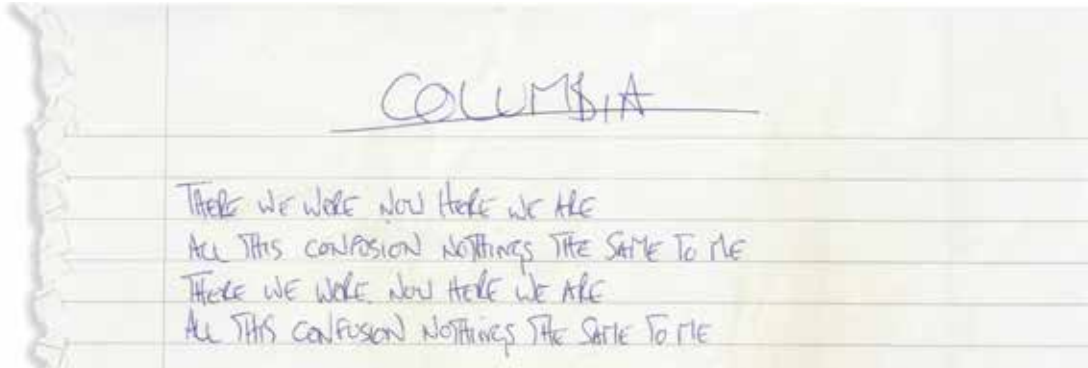 COLUMBIA
THERE WE WERE NOW HERE WE ARE
ALL THIS CONFUSION NOTHINGS THE SAME TO ME
THERE WE WERE NOW HERE WE ARE
ALL THIS CONFUSION NOTHINGS THE SAME TO ME